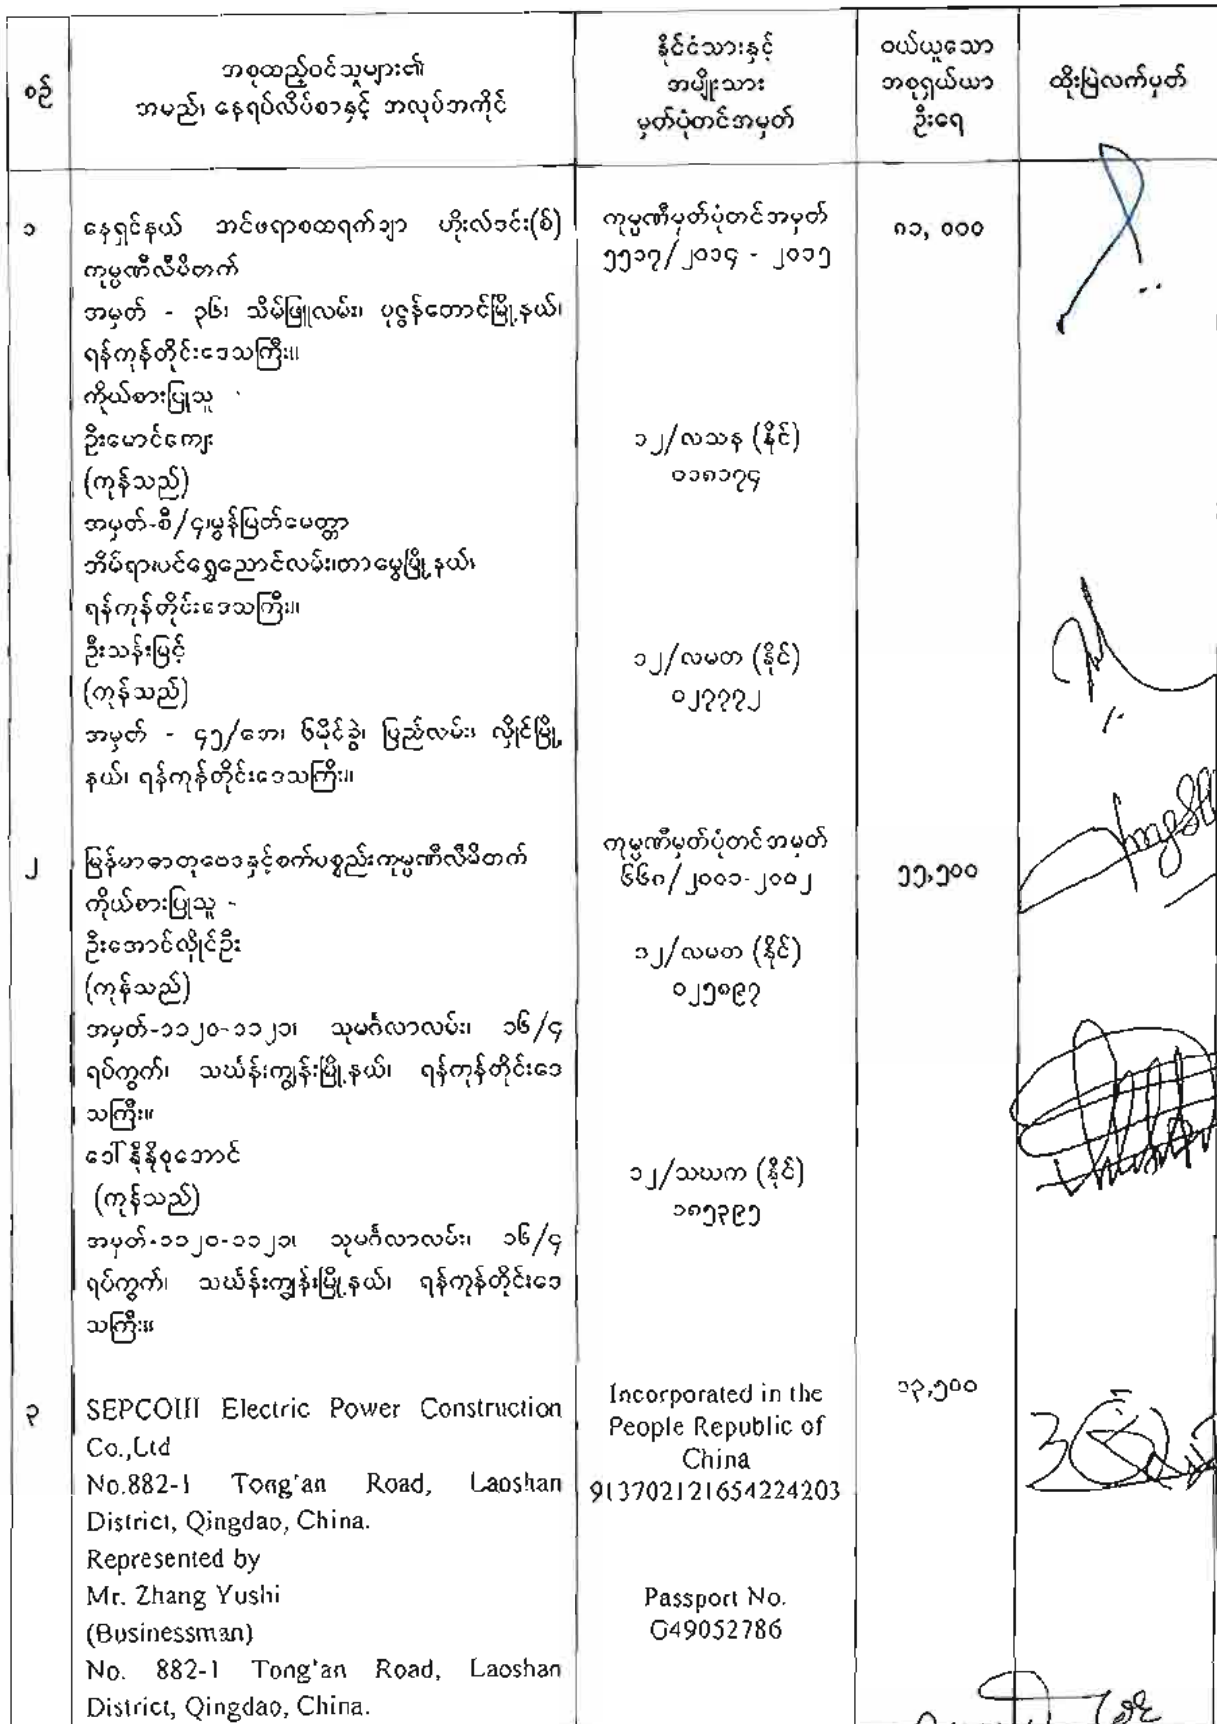 စဉ်
အစုထည့်ဝင်သူများ၏
အမည်၊ နေရပ်လိပ်စာနှင့် အလုပ်အကိုင်
နိုင်ငံသားနှင့်
အမျိုးသား
မှတ်ပုံတင်အမှတ်
ဝယ်ယူသော
အစုရှယ်ယာ
ဦးရေ
ထိုးမြဲလက်မှတ်
၁
နေရှင်နယ် အင်ဖရာစထရက်ချာ ဟိုးလ်ဒင်း(စ်)
ကုမ္ပဏီလီမိတက်
အမှတ် - ၃၆၊ သိမ်ဖြူလမ်း၊ ပုဇွန်တောင်မြို့နယ်၊
ရန်ကုန်တိုင်းဒေသကြီး။
ကိုယ်စားပြုသူ -
ဦးမောင်ကျေး
(ကုန်သည်)
အမှတ်-စီ/၄၊မွန်မြတ်မေတ္တာ
အိမ်ရာ၊ပင်ရွှေညောင်လမ်း၊တာမွေမြို့နယ်၊
ရန်ကုန်တိုင်းဒေသကြီး။
ဦးသန်းမြင့်
(ကုန်သည်)
အမှတ် - ၄၅/အေ၊ ၆မိုင်ခွဲ၊ ပြည်လမ်း၊ လှိုင်မြို့
နယ်၊ ရန်ကုန်တိုင်းဒေသကြီး။
ကုမ္ပဏီမှတ်ပုံတင်အမှတ်
၅၅၁၇/၂၀၁၄ - ၂၀၁၅
၁၂/လသန (နိုင်)
၀၁၈၁၇၄
၁၂/လမတ (နိုင်)
၀၂၇၇၇၂
၈၁, ၀၀၀
၂
မြန်မာဓာတုဗေဒနှင့်စက်ပစ္စည်းကုမ္ပဏီလီမိတက်
ကိုယ်စားပြုသူ -
ဦးအောင်လှိုင်ဦး
(ကုန်သည်)
အမှတ်-၁၁၂၀-၁၁၂၁၊ သုမင်္ဂလာလမ်း၊ ၁၆/၄
ရပ်ကွက်၊ သင်္ဃန်းကျွန်းမြို့နယ်၊ ရန်ကုန်တိုင်းဒေ
သကြီး။
ဒေါ်နီနီစုအောင်
(ကုန်သည်)
အမှတ်-၁၁၂၀-၁၁၂၁၊ သုမင်္ဂလာလမ်း၊ ၁၆/၄
ရပ်ကွက်၊ သင်္ဃန်းကျွန်းမြို့နယ်၊ ရန်ကုန်တိုင်းဒေ
သကြီး။
ကုမ္ပဏီမှတ်ပုံတင်အမှတ်
၆၆၈/၂၀၀၁-၂၀၀၂
၁၂/လမတ (နိုင်)
၀၂၅၈၉၇
၁၂/သဃက (နိုင်)
၁၈၅၃၉၅
၅၅,၅၀၀
၃
SEPCOIII Electric Power Construction
Co.,Ltd
No.882-1 Tong'an Road, Laoshan
District, Qingdao, China.
Represented by
Mr. Zhang Yushi
(Businessman)
No. 882-1 Tong'an Road, Laoshan
District, Qingdao, China.
Incorporated in the
People Republic of
China
913702121654224203
Passport No.
G49052786
၁၃,၅၀၀